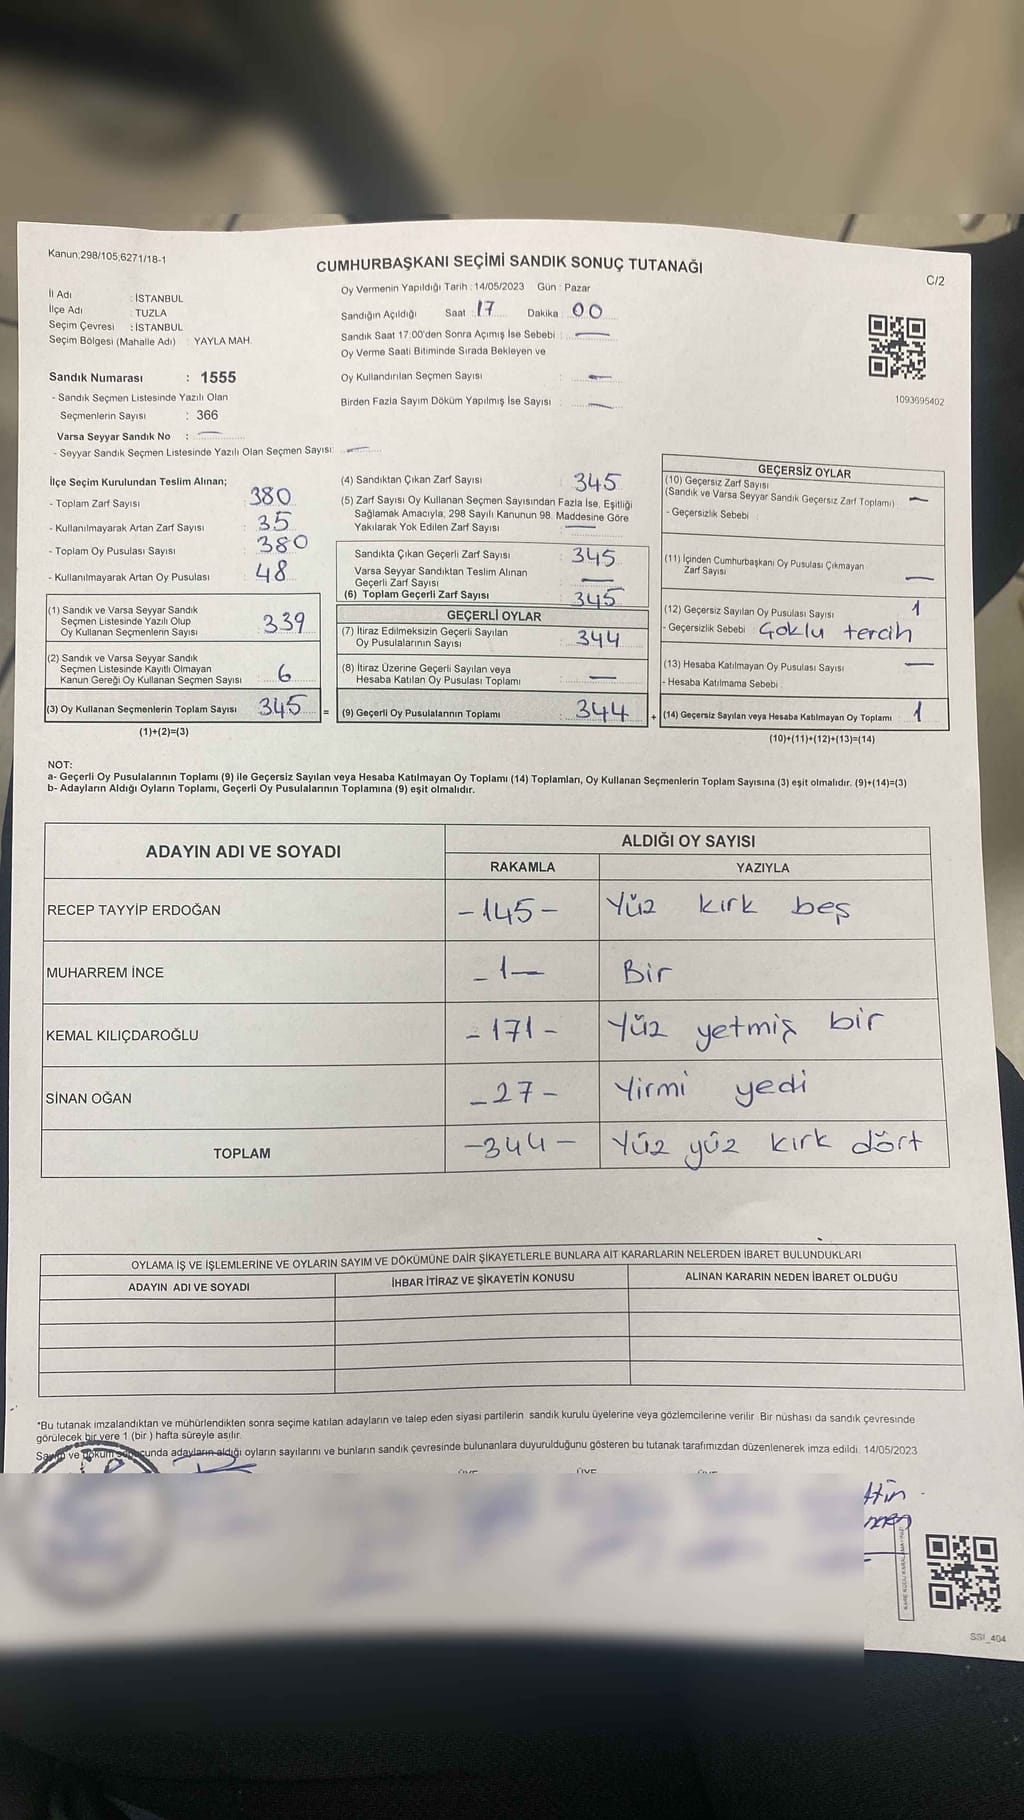 Kanun;298/105,6271/18-1
CUMHURBAŞKANI SEÇİMİ SANDIK SONUÇ TUTANAĞI
C/2
İl Adı : İSTANBUL
İlçe Adı : TUZLA
Seçim Çevresi : İSTANBUL
Seçim Bölgesi (Mahalle Adı) : YAYLA MAH.
Oy Vermenin Yapıldığı Tarih : 14/05/2023 Gün : Pazar
Sandığın Açıldığı Saat : 17 Dakika : 00
Sandık Saat 17:00'den Sonra Açımış İse Sebebi : —
Oy Verme Saati Bitiminde Sırada Bekleyen ve
Oy Kullandırılan Seçmen Sayısı : —
Birden Fazla Sayım Döküm Yapılmış İse Sayısı : —
1093695402
Sandık Numarası : 1555
- Sandık Seçmen Listesinde Yazılı Olan
Seçmenlerin Sayısı : 366
Varsa Seyyar Sandık No : —
- Seyyar Sandık Seçmen Listesinde Yazılı Olan Seçmen Sayısı: —
İlçe Seçim Kurulundan Teslim Alınan;
- Toplam Zarf Sayısı : 380
- Kullanılmayarak Artan Zarf Sayısı : 35
- Toplam Oy Pusulası Sayısı : 380
- Kullanılmayarak Artan Oy Pusulası : 48
(1) Sandık ve Varsa Seyyar Sandık
Seçmen Listesinde Yazılı Olup
Oy Kullanan Seçmenlerin Sayısı : 339
(2) Sandık ve Varsa Seyyar Sandık
Seçmen Listesinde Kayıtlı Olmayan
Kanun Gereği Oy Kullanan Seçmen Sayısı : 6
(3) Oy Kullanan Seçmenlerin Toplam Sayısı : 345 =
(1)+(2)=(3)
(4) Sandıktan Çıkan Zarf Sayısı : 345
(5) Zarf Sayısı Oy Kullanan Seçmen Sayısından Fazla İse, Eşitliği
Sağlamak Amacıyla; 298 Sayılı Kanunun 98. Maddesine Göre
Yakılarak Yok Edilen Zarf Sayısı : —
Sandıkta Çıkan Geçerli Zarf Sayısı : 345
Varsa Seyyar Sandıktan Teslim Alınan
Geçerli Zarf Sayısı : —
(6) Toplam Geçerli Zarf Sayısı : 345
GEÇERLİ OYLAR
(7) İtiraz Edilmeksizin Geçerli Sayılan
Oy Pusulasının Sayısı : 344
(8) İtiraz Üzerine Geçerli Sayılan veya
Hesaba Katılan Oy Pusulası Toplamı : —
(9) Geçerli Oy Pusulalarının Toplamı : 344 +
GEÇERSİZ OYLAR
(10) Geçersiz Zarf Sayısı
(Sandık ve Varsa Seyyar Sandık Geçersiz Zarf Toplamı) : —
- Geçersizlik Sebebi :
(11) İçinden Cumhurbaşkanı Oy Pusulası Çıkmayan
Zarf Sayısı : —
(12) Geçersiz Sayılan Oy Pusulası Sayısı : 1
- Geçersizlik Sebebi : Çoklu tercih
(13) Hesaba Katılmayan Oy Pusulası Sayısı : —
- Hesaba Katılmama Sebebi :
(14) Geçersiz Sayılan veya Hesaba Katılmayan Oy Toplamı : 1
(10)+(11)+(12)+(13)=(14)
NOT:
a- Geçerli Oy Pusulalarının Toplamı (9) ile Geçersiz Sayılan veya Hesaba Katılmayan Oy Toplamı (14) Toplamları, Oy Kullanan Seçmenlerin Toplam Sayısına (3) eşit olmalıdır. (9)+(14)=(3)
b- Adayların Aldığı Oyların Toplamı, Geçerli Oy Pusulalarının Toplamına (9) eşit olmalıdır.
ADAYIN ADI VE SOYADI
ALDIĞI OY SAYISI
RAKAMLA YAZIYLA
RECEP TAYYİP ERDOĞAN -145- Yüz kırk beş
MUHARREM İNCE -1- Bir
KEMAL KILIÇDAROĞLU -171- Yüz yetmiş bir
SİNAN OĞAN -27- Yirmi yedi
TOPLAM -344- Yüz yüz kırk dört
OYLAMA İŞ VE İŞLEMLERİNE VE OYLARIN SAYIM VE DÖKÜMÜNE DAİR ŞİKAYETLERLE BUNLARA AİT KARARLARIN NELERDEN İBARET BULUNDUKLARI
ADAYIN ADI VE SOYADI İHBAR İTİRAZ VE ŞİKAYETİN KONUSU ALINAN KARARIN NEDEN İBARET OLDUĞU
*Bu tutanak imzalandıktan ve mühürlendikten sonra seçime katılan adayların ve talep eden siyasi partilerin sandık kurulu üyelerine veya gözlemcilerine verilir. Bir nüshası da sandık çevresinde
görülecek bir yere 1 (bir ) hafta süreyle asılır.
Sayım ve döküm sonucunda adayların aldığı oyların sayılarını ve bunların sandık çevresinde bulunanlara duyurulduğunu gösteren bu tutanak tarafımızdan düzenlenerek imza edildi. 14/05/2023
SSI_404